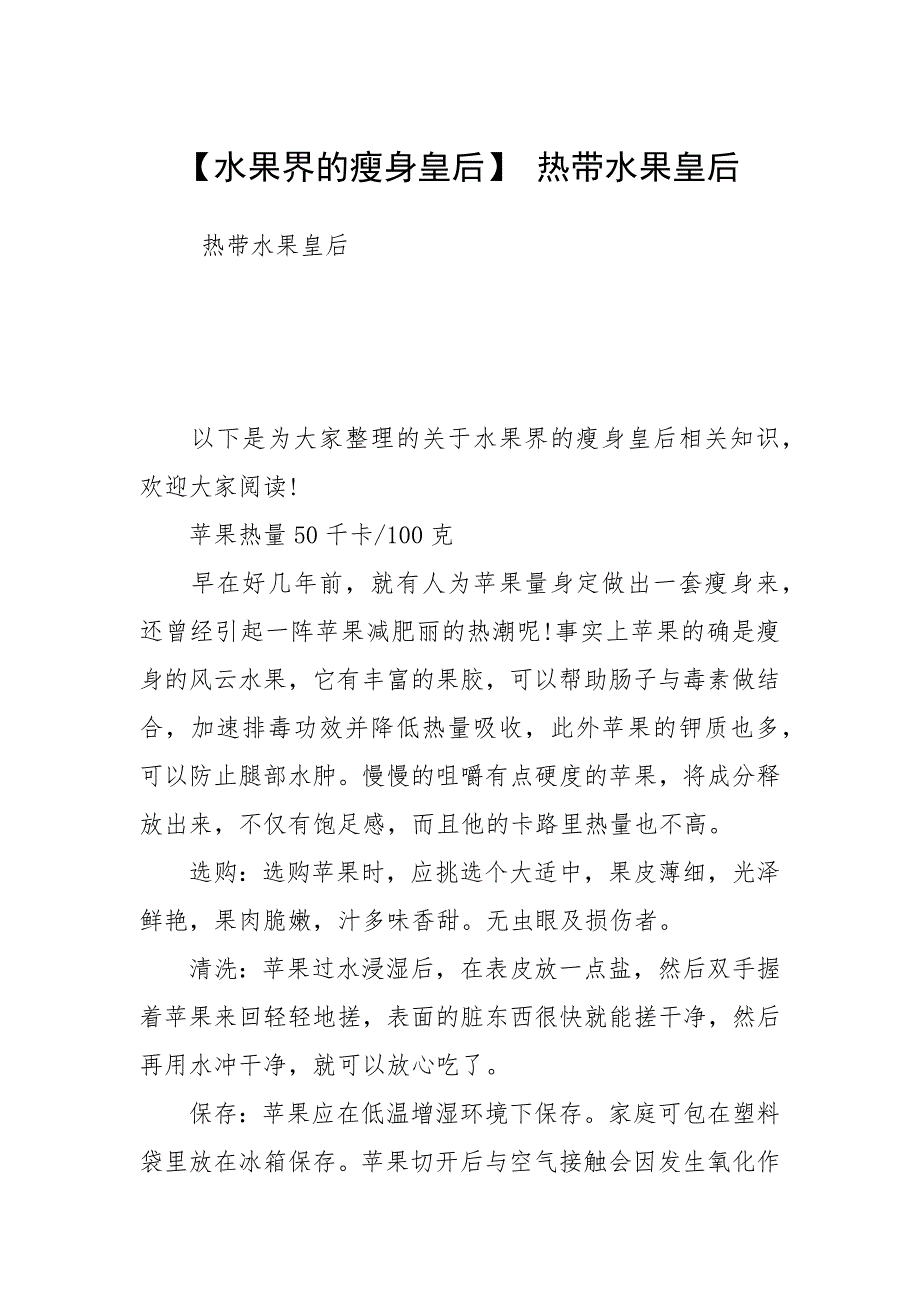 【水果界的瘦身皇后】 热带水果皇后
热带水果皇后
以下是为大家整理的关于水果界的瘦身皇后相关知识，
欢迎大家阅读!
苹果热量 50 千卡/100 克
早在好几年前，就有人为苹果量身定做出一套瘦身来，
还曾经引起一阵苹果减肥丽的热潮呢!事实上苹果的确是瘦
身的风云水果，它有丰富的果胶，可以帮助肠子与毒素做结
合，加速排毒功效并降低热量吸收，此外苹果的钾质也多，
可以防止腿部水肿。慢慢的咀嚼有点硬度的苹果，将成分释
放出来，不仅有饱足感，而且他的卡路里热量也不高。
选购：选购苹果时，应挑选个大适中，果皮薄细，光泽
鲜艳，果肉脆嫩，汁多味香甜。无虫眼及损伤者。
清洗：苹果过水浸湿后，在表皮放一点盐，然后双手握
着苹果来回轻轻地搓，表面的脏东西很快就能搓干净，然后
再用水冲干净，就可以放心吃了。
保存：苹果应在低温增湿环境下保存。家庭可包在塑料
袋里放在冰箱保存。苹果切开后与空气接触会因发生氧化作